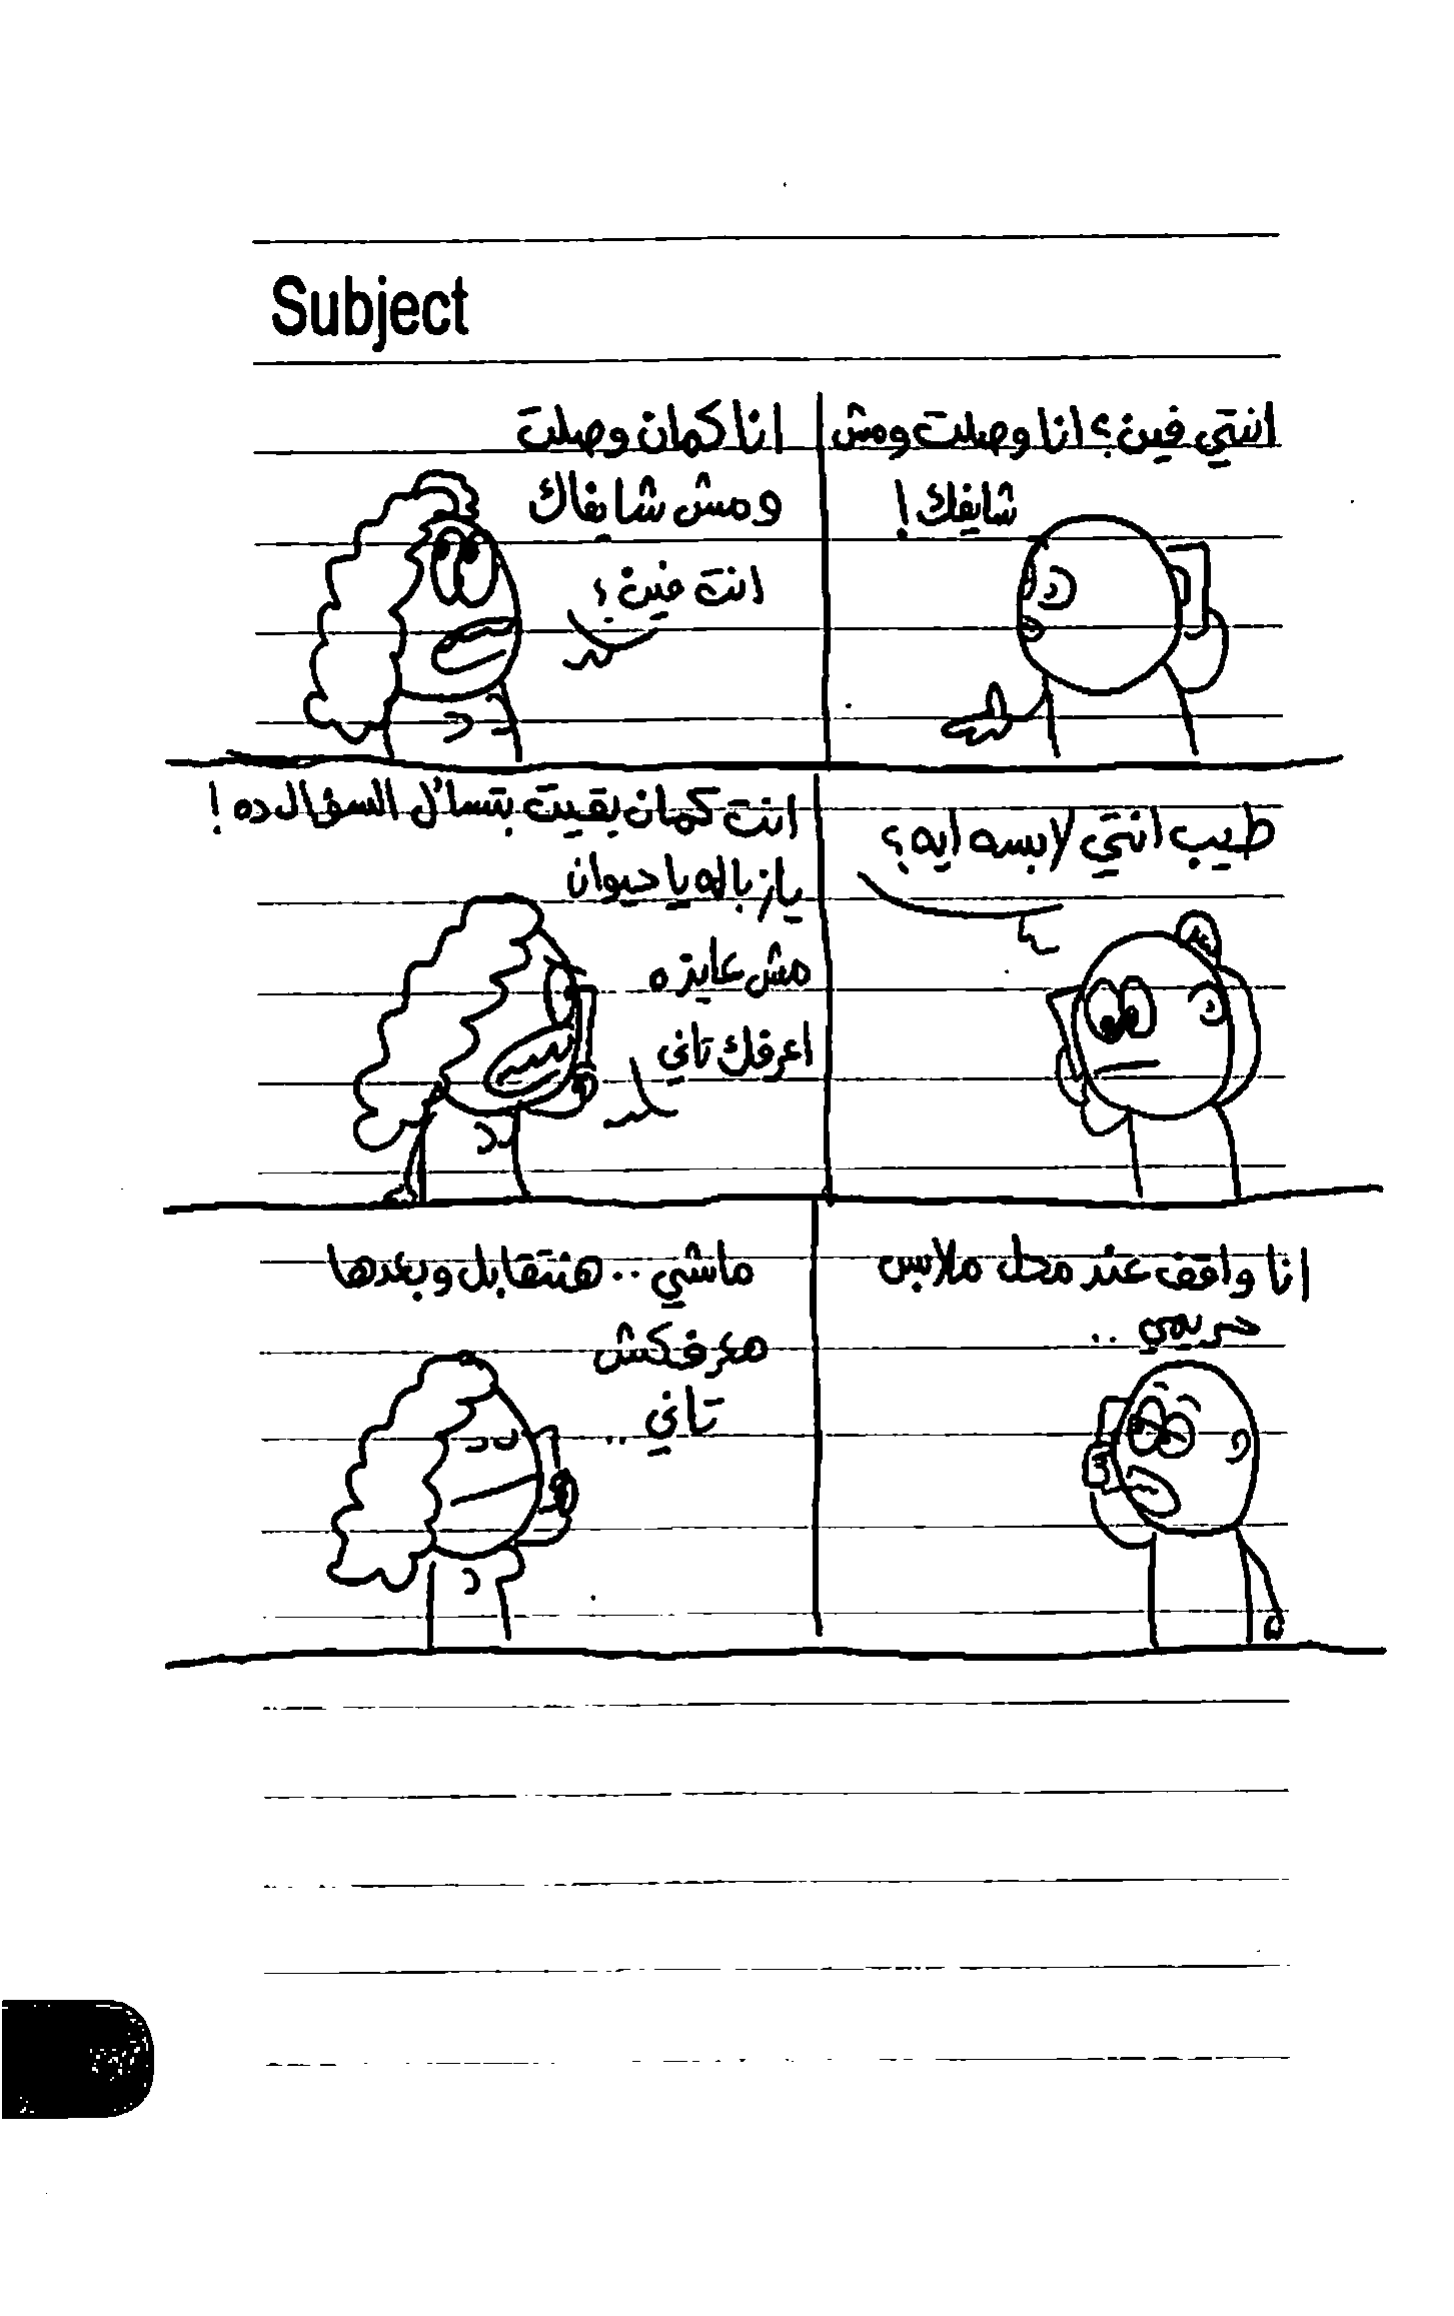 Subject
انتي فين؟ انا وصلت ومش
شايفك!
انا كمان وصلت
ومش شايفاك
انت فين؟
طيب انتي لابسه ايه؟
انت كمان بقيت بتسأل السؤال ده!
يازباله ياحيوان
مش عايزه
اعرفك تاني
انا واقف عند محل ملابس
حريمي..
ماشي.. هنتقابل وبعدها
معرفكش
تاني..